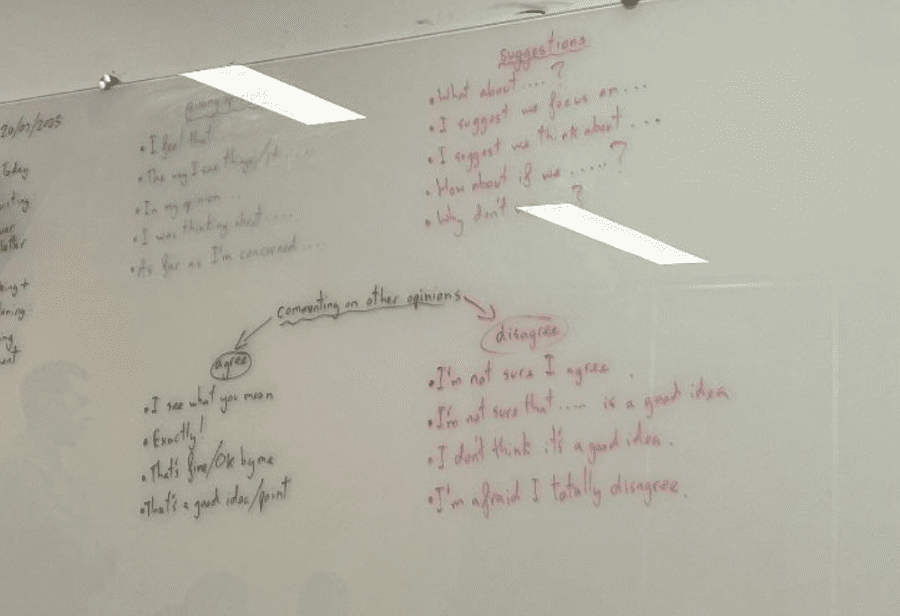 20/01/2025
Today
Giving opinions
• I feel that
• The way I see things/it ....
• In my opinion...
• I was thinking about ....
• As far as I'm concerned ....
Suggestions
• What about ....?
• I suggest we focus on ...
• I suggest we think about ...
• How about if we .....?
• Why don't ?
commenting on other opinions
agree
• I see what you mean
• Exactly!
• That's fine/Ok by me
• That's a good idea/point
disagree
• I'm not sure I agree .
• I'm not sure that .... is a good idea
• I don't think it's a good idea.
• I'm afraid I totally disagree.